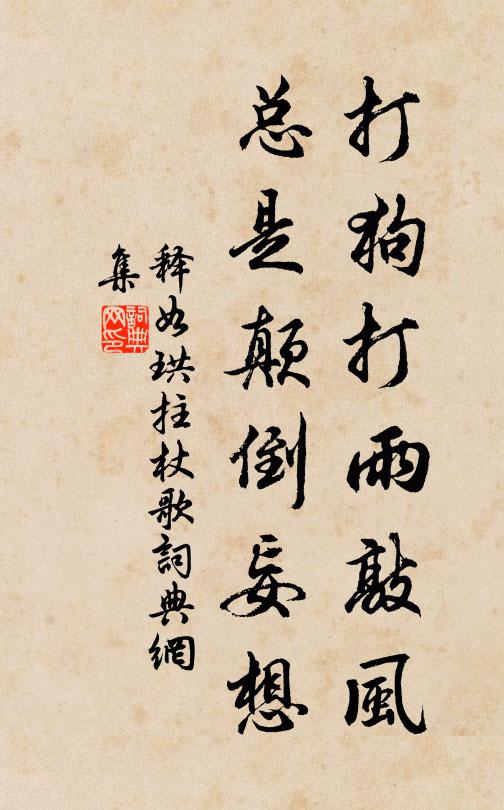 打狗打雨敲風
总是颠倒妄想
释如珙拄杖歌詞典網
集
詞典
网印